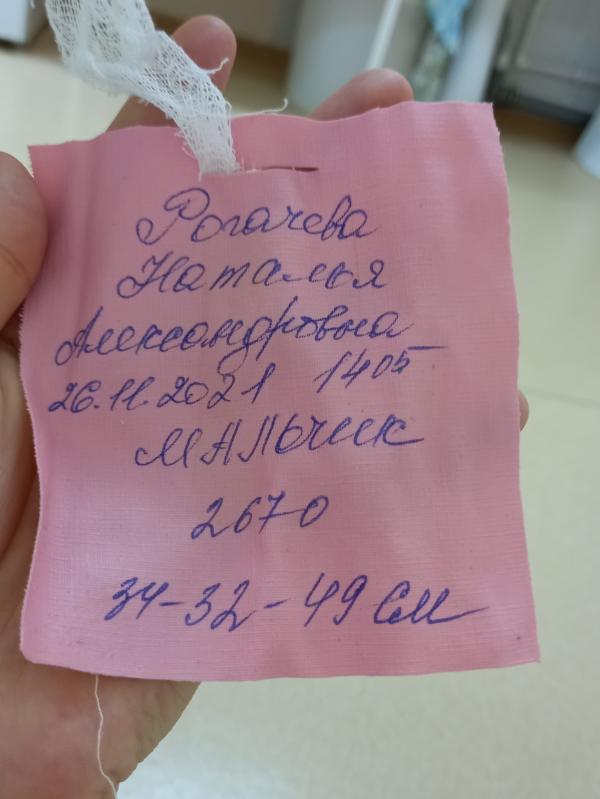 Рогачева
Наталья
Александровна
26.11.2021 1405
Мальчик
2670
34-32-49 см